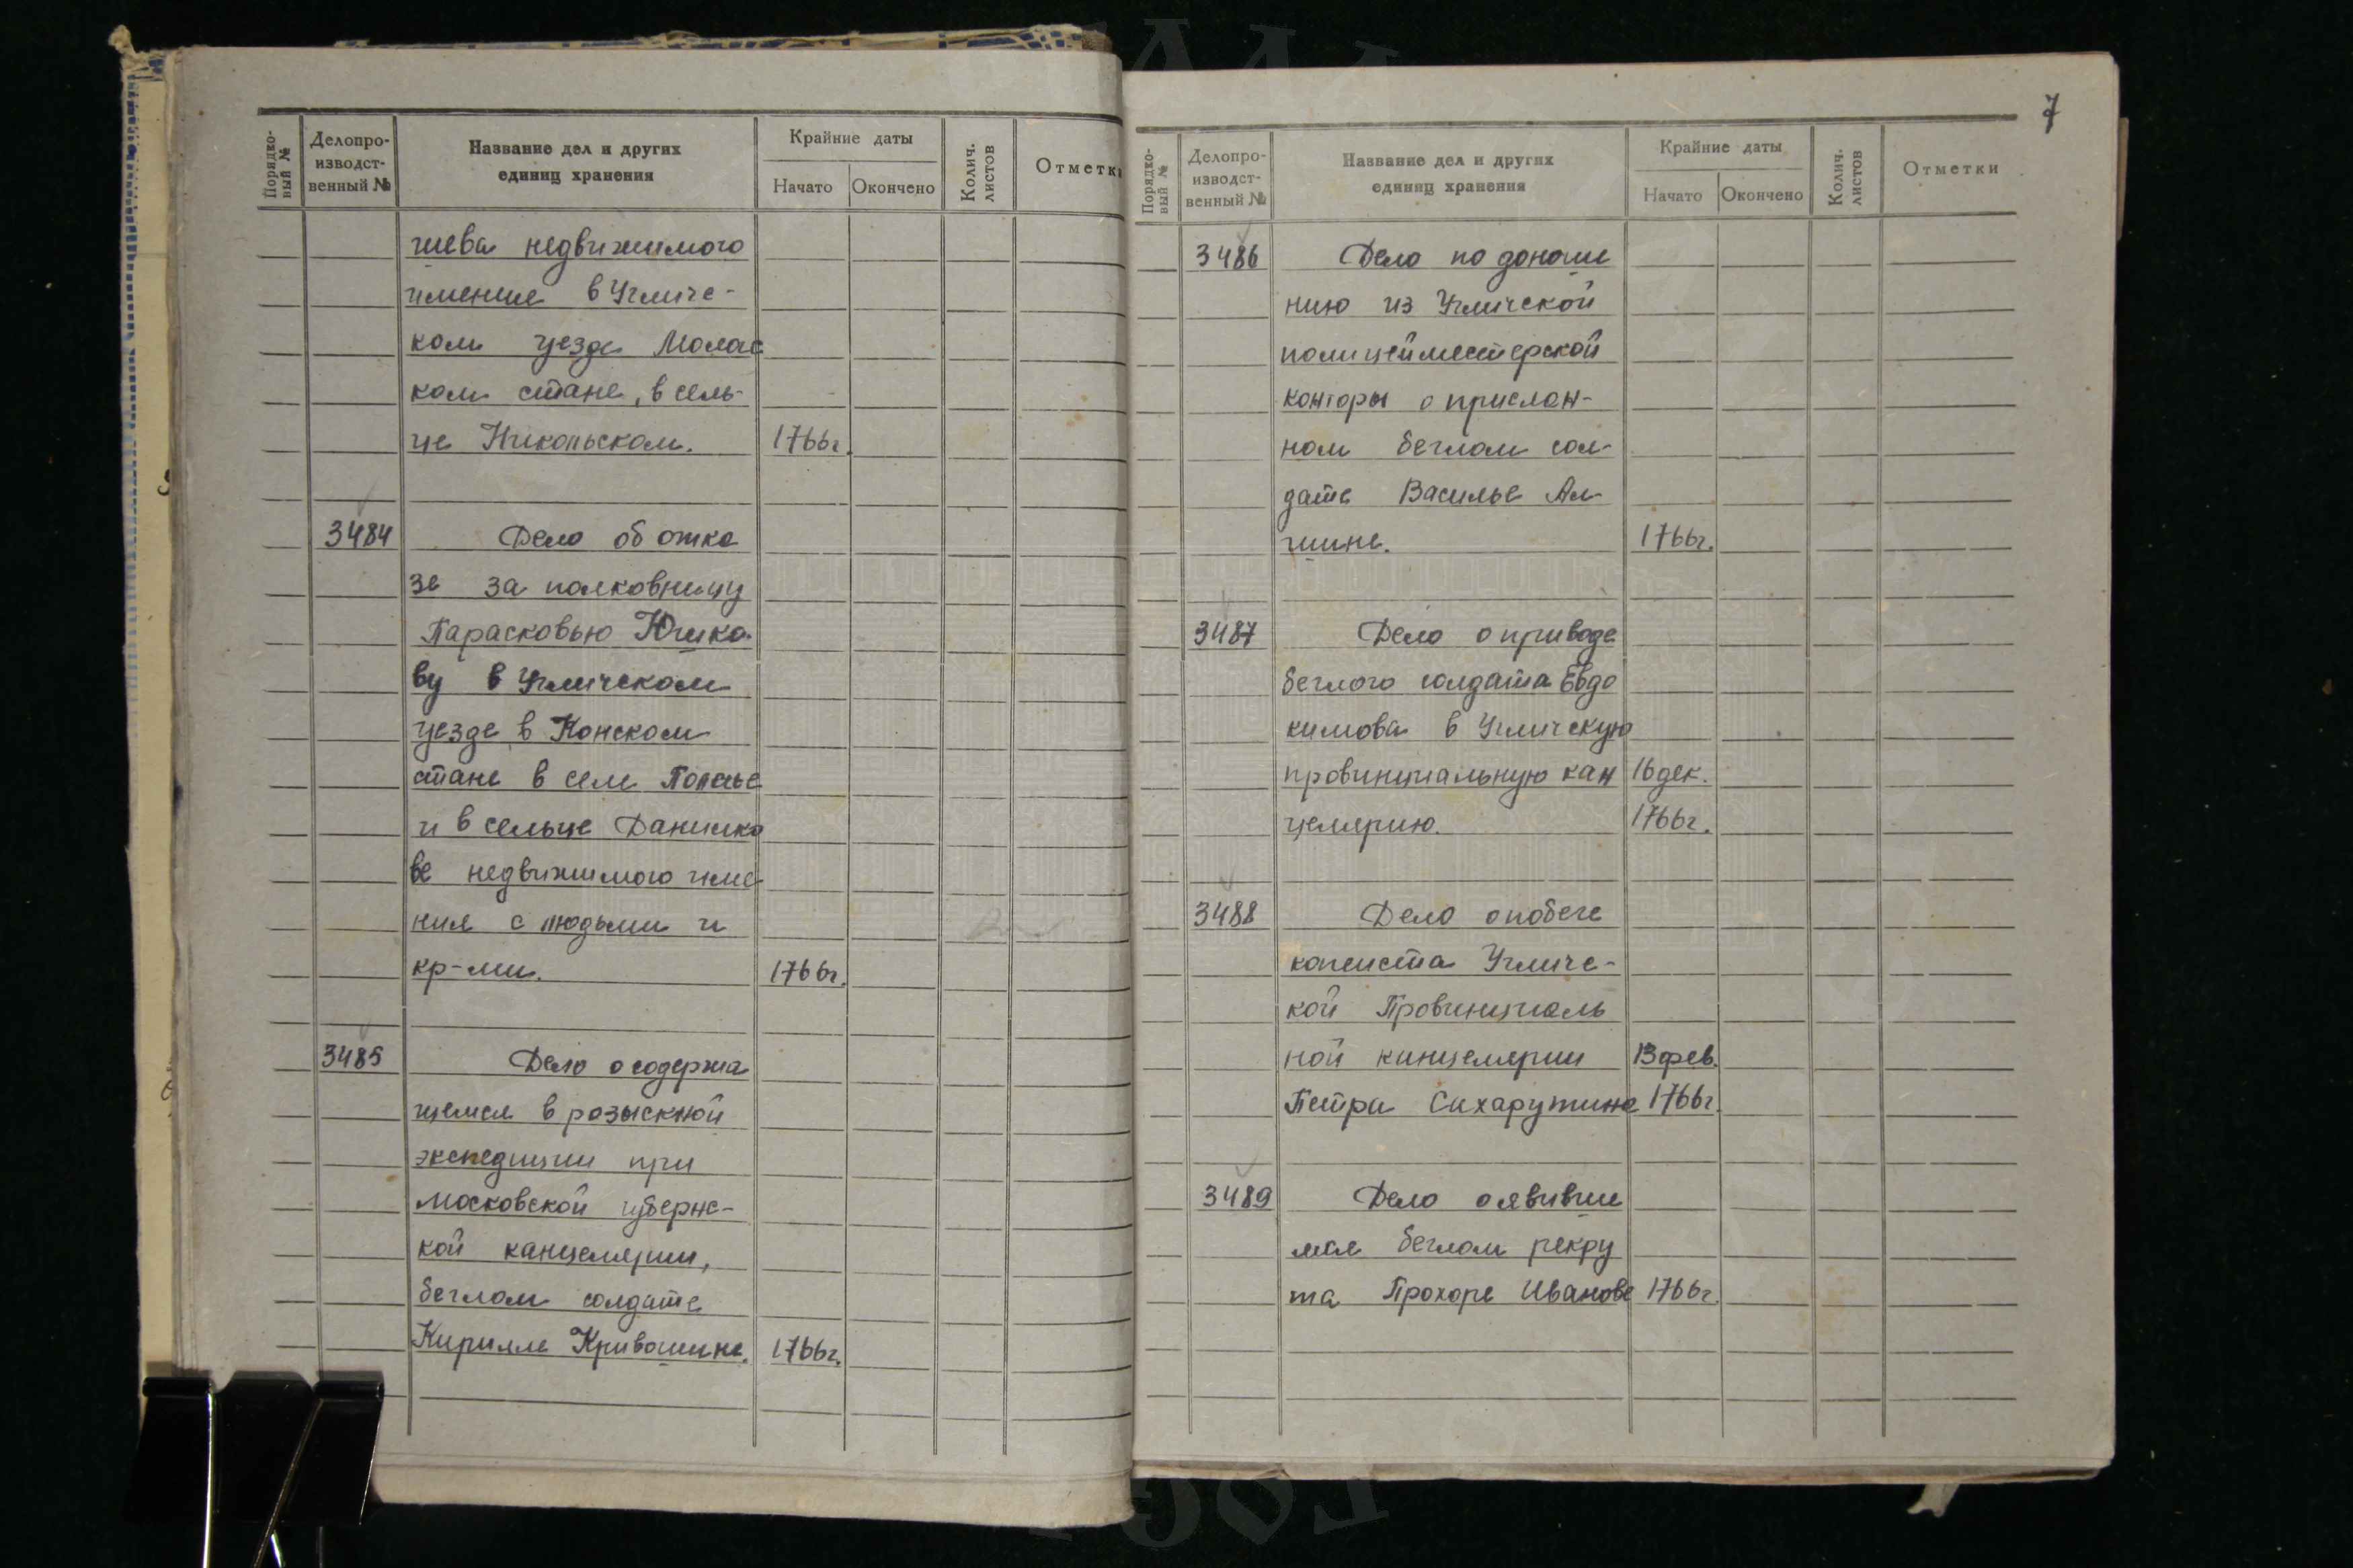 Порядко-
вый №
Делопро-
изводст-
венный №
Название дел и других
единиц хранения
Крайние даты
Начато
Окончено
Колич.
листов
Отметки
шева недвижимого
имение в Угличс-
ком уезде Молос
ком стане, в сель-
це Никольском. 1766г.
3484 Дело об отка
зе за полковницу
Парасковью Юшко-
ву в Угличском
уезде в Конском
стане в селе
и в сельце Данилко
ве недвижимого име
ния с людьми и
кр-ми. 1766г.
3485 Дело о содержа
щемся в розыскной
экспедиции при
московской губернс-
кой канцелярии,
беглом солдате
Кирилле Кривошине. 1766г.
7
Порядко-
вый №
Делопро-
изводст-
венный №
Название дел и других
единиц хранения
Крайние даты
Начато
Окончено
Колич.
листов
Отметки
3486 Дело по доноше
нию из Угличской
полицейместерской
конторы о прислан-
ном беглом сол-
дате Василье Ал
шине. 1766г.
3487 Дело о приводе
беглого солдата Евдо
кимова в Угличскую
провинциальную кан 16 дек.
целярию. 1766г.
3488 Дело о побеге
копеиста Угличс-
кой Провинциаль
ной канцелярии 13 фев.
Петра Сахарутина 1766г.
3489 Дело о явивше
мся беглом рекру
та Прохоре Иванове 1766г.